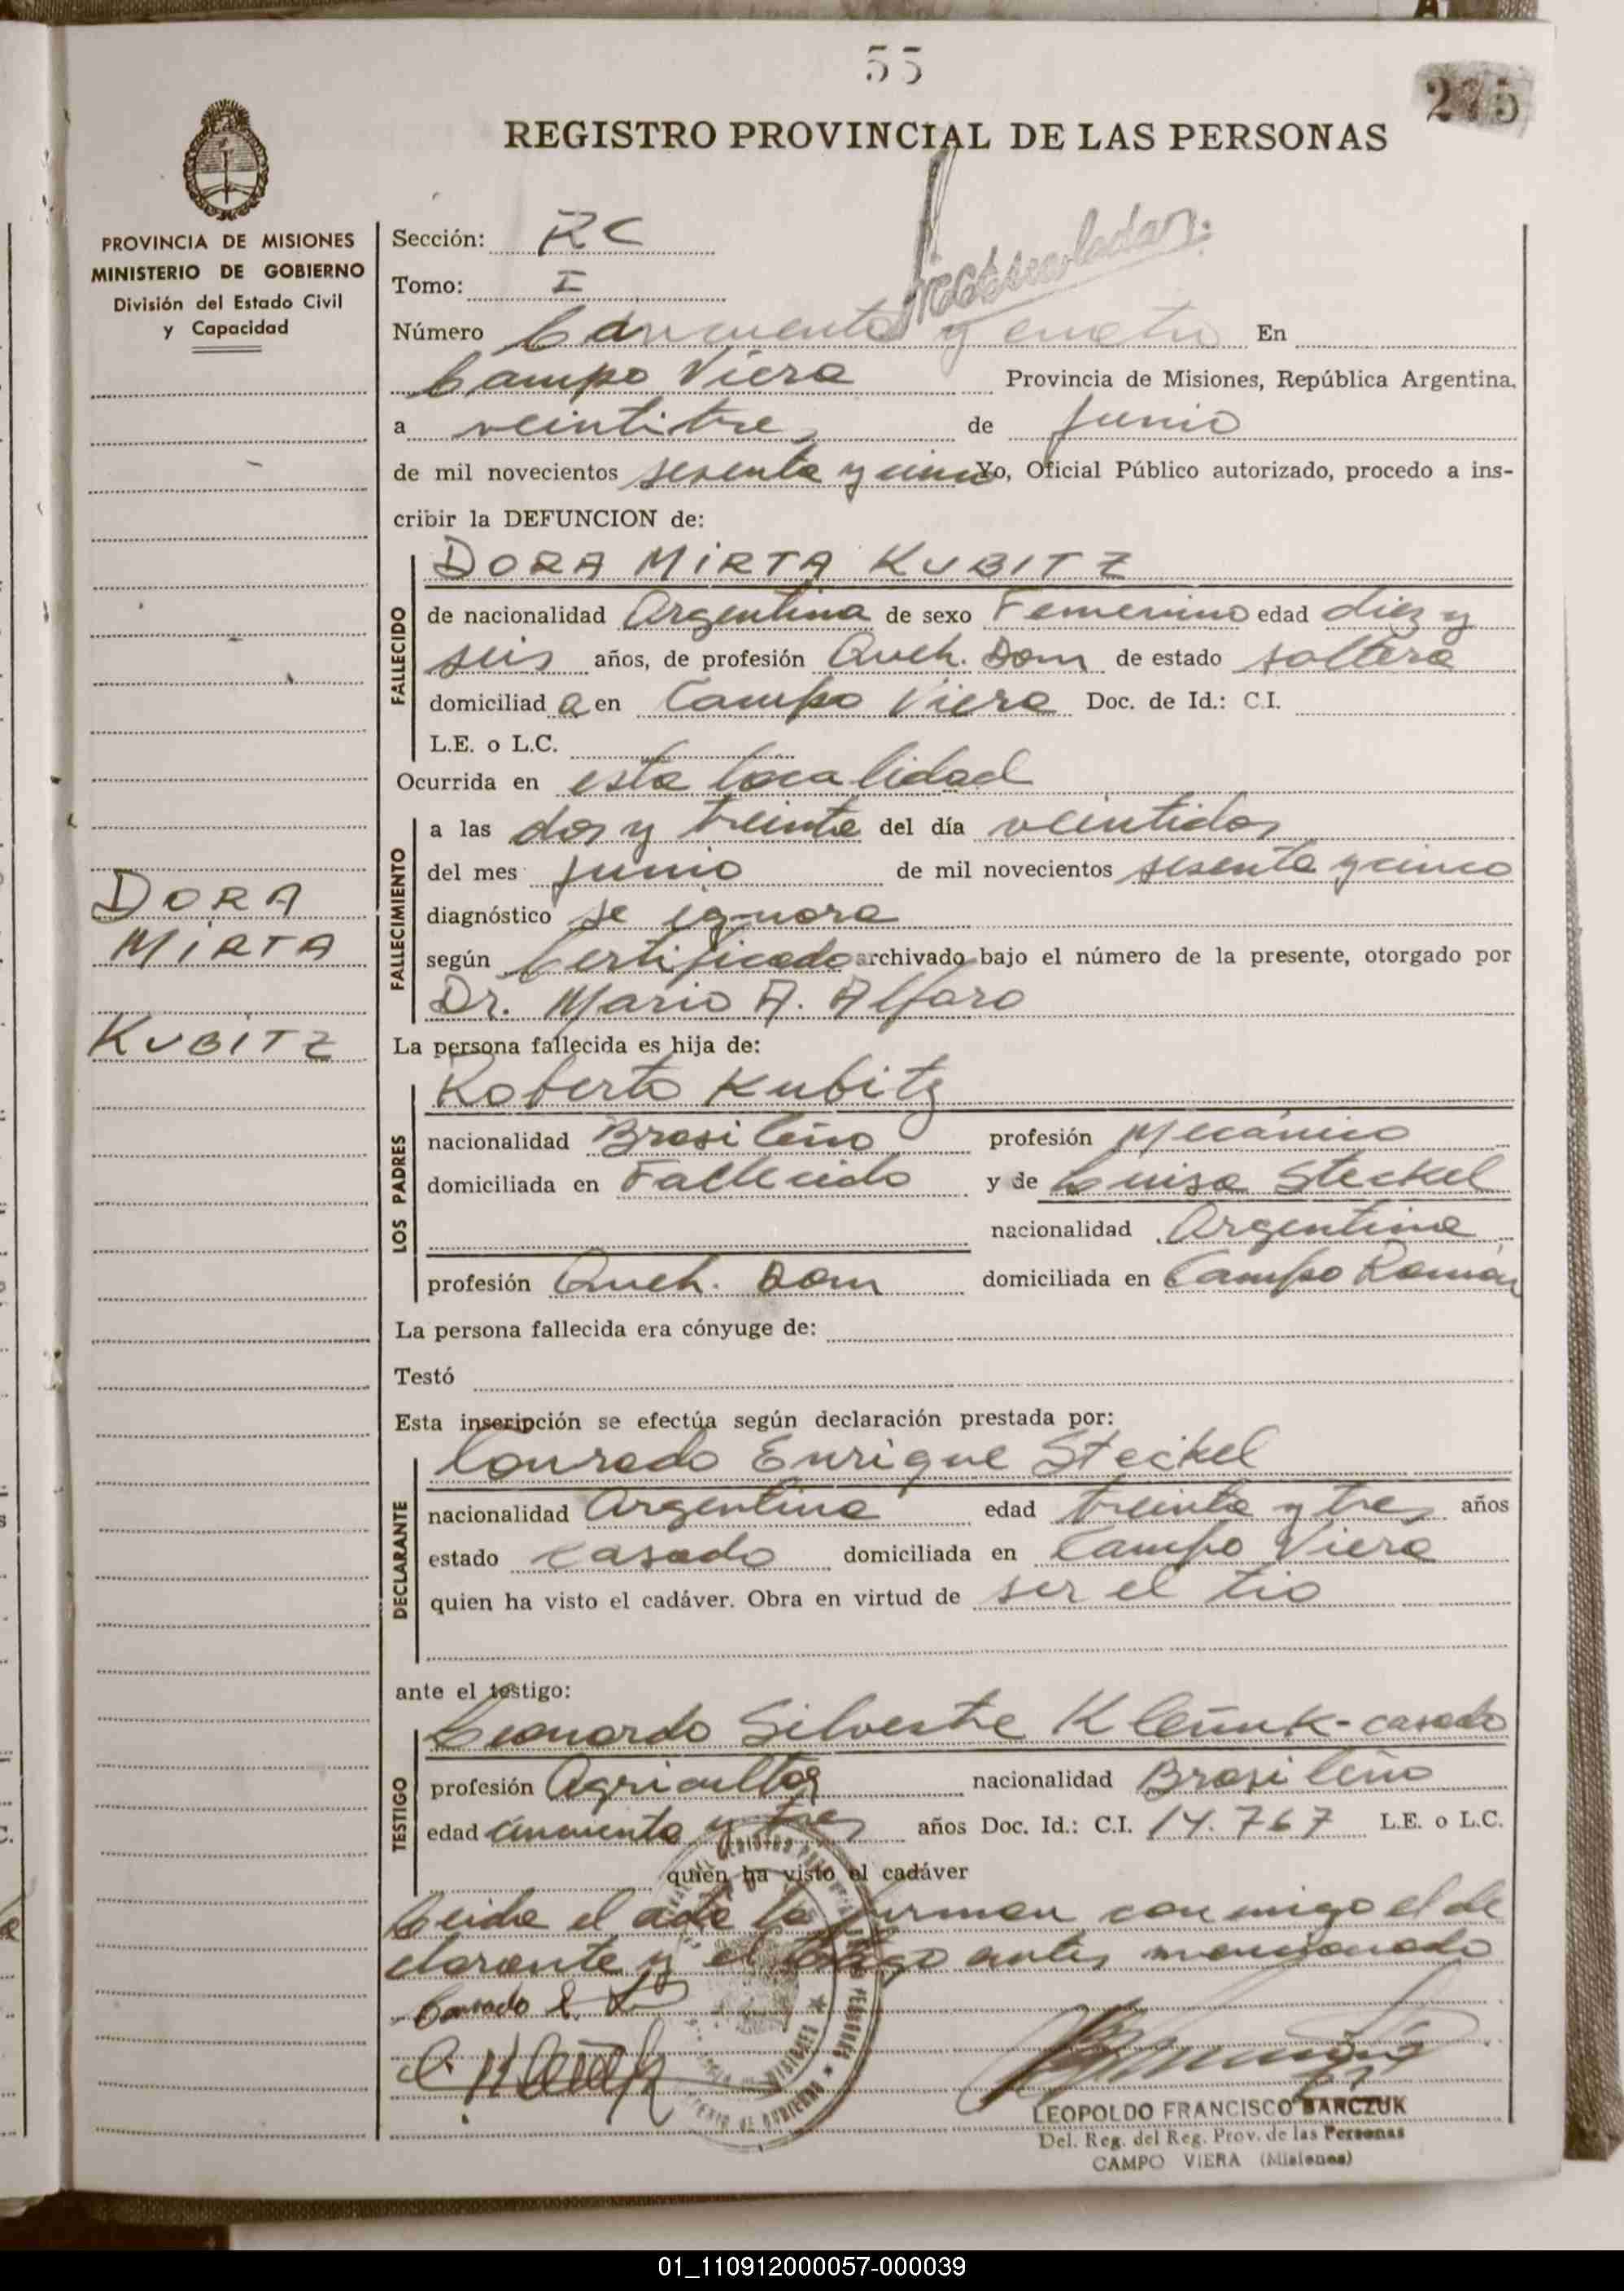 55
275
REGISTRO PROVINCIAL DE LAS PERSONAS
PROVINCIA DE MISIONES
MINISTERIO DE GOBIERNO
División del Estado Civil
y Capacidad
Sección: RC
Tomo: I
Número Cincuenta y cuatro En
Campo Viera Provincia de Misiones, República Argentina,
a veintitres de Junio
de mil novecientos sesenta y cinco Yo, Oficial Público autorizado, procedo a ins-
cribir la DEFUNCION de:
FALLECIDO
DORA MIRTA KUBITZ
de nacionalidad Argentina de sexo Femenino edad diez y
seis años, de profesión Queh. Dom de estado soltera
domiciliad a en Campo Viera Doc. de Id.: C.I.
L.E. o L.C.
Ocurrida en esta localidad
FALLECIMIENTO
a las dos y treinta del día veintidos
del mes Junio de mil novecientos sesenta y cinco
diagnóstico se ignora
según Certificado archivado bajo el número de la presente, otorgado por
Dr. Mario A. Alfaro
DORA
MIRTA
KUBITZ
La persona fallecida es hija de:
LOS PADRES
Roberto Kubitz
nacionalidad Brasileño profesión Mecánico
domiciliada en Fallecido y de Luisa Steckel
nacionalidad Argentina
profesión Queh. Dom domiciliada en Campo Ramón
La persona fallecida era cónyuge de:
Testó
Esta inscripción se efectúa según declaración prestada por:
DECLARANTE
Conrado Enrique Steckel
nacionalidad Argentina edad treinta y tres años
estado casado domiciliada en Campo Viera
quien ha visto el cadáver. Obra en virtud de ser el tio
ante el testigo:
TESTIGO
Leonardo Silvestre - casado
profesión Agricultor nacionalidad Brasileño
edad cincuenta y tres años Doc. Id.: C.I. 14.767 L.E. o L.C.
quien ha visto el cadáver
Leida el acta la firman conmigo el de
clarante y el testigo antes mencionado
Conrado E.
LEOPOLDO FRANCISCO BARCZUK
Del. Reg. del Reg. Prov. de las Personas
CAMPO VIERA (Misiones)
01_110912000057-000039